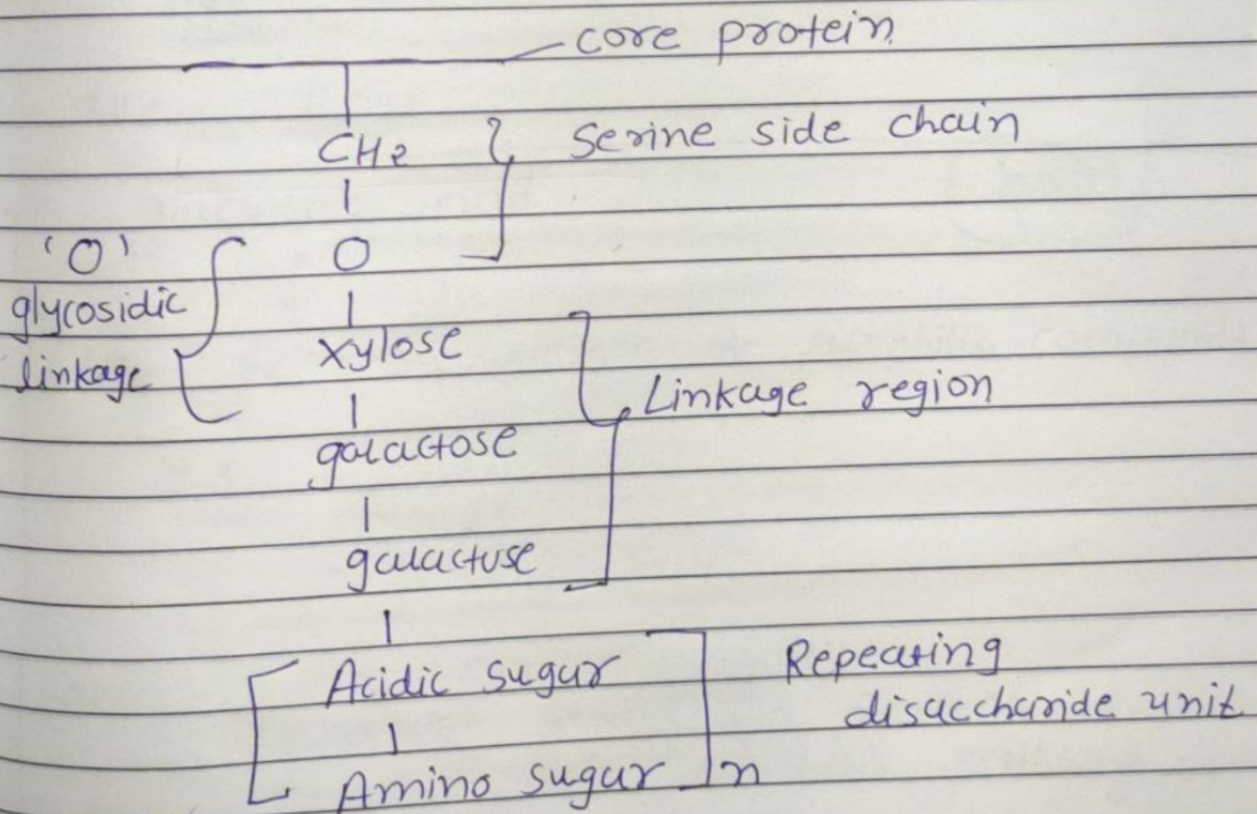 core protein
CH2 Serine side chain
'O' O
glycosidic
linkage xylose
Linkage region
galactose
galactose
Acidic sugar Repeating
disaccharide unit
Amino sugar n